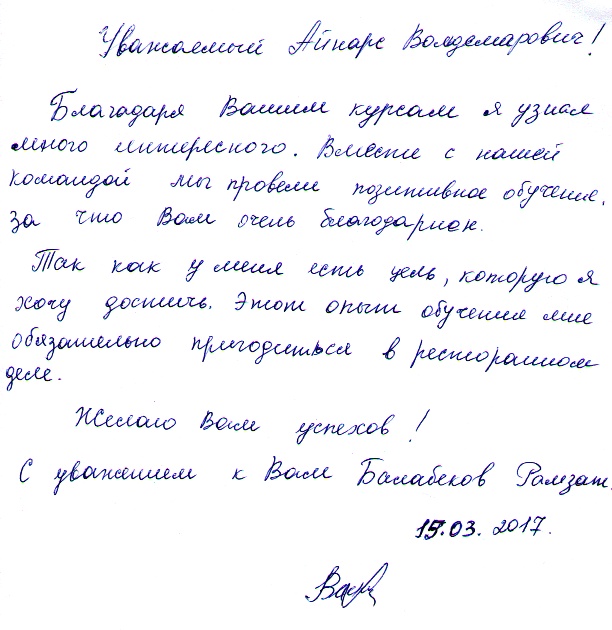 Уважаемый Айнарс Волдемарович!
Благодаря Вашим курсам я узнал
много интересного. Вместе с нашей
командой мы провели позитивное обучение,
за что Вам очень благодарион.
Так как у меня есть цель, которую я
хочу достичь. Этот опыт обучения мне
обязательно пригодиться в ресторанном
деле.
Желаю Вам успехов!
С уважением к Вам Балабеков Рамзат.
15.03.2017.